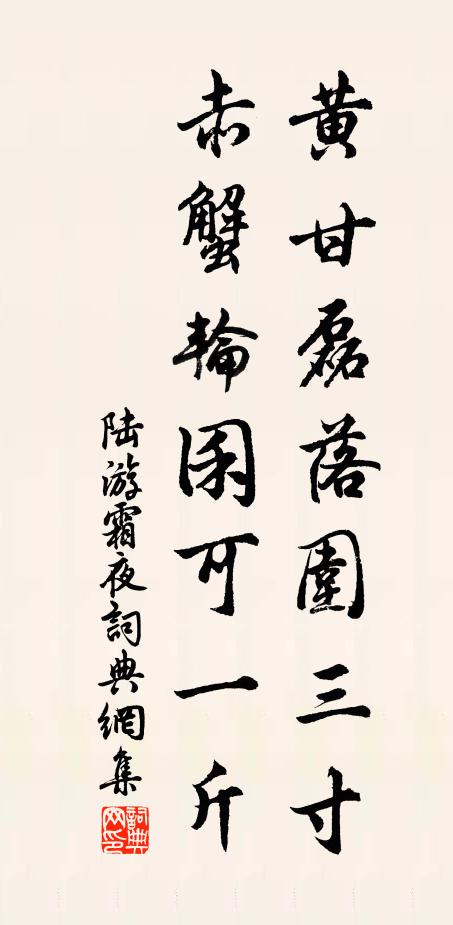 黄甘磊落圍三寸
赤蟹輪囷可一斤
陆游霜夜詞典網集
詞典网印